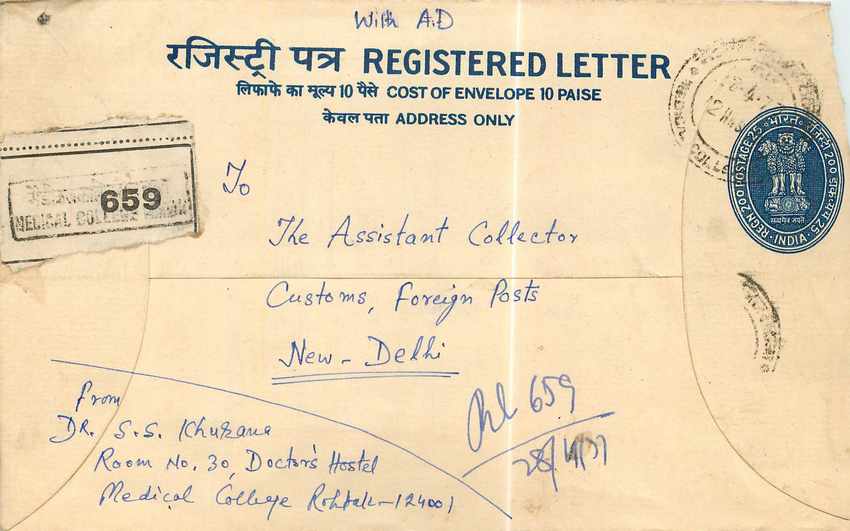 With A.D
रजिस्ट्री पत्र REGISTERED LETTER
लिफाफे का मूल्य 10 पैसे COST OF ENVELOPE 10 PAISE
केवल पता ADDRESS ONLY
REGN 200 POSTAGE 25 भारत रजिस्ट्री 200 डाक-व्यय 25
सत्यमेव जयते
INDIA
659
MEDICAL COLLEGE
To
The Assistant Collector
Customs, Foreign Posts
New-Delhi
659
28/4/77
From
DR. S.S. Khurana
Room No. 30, Doctor's Hostel
Medical College Rohtak-124001